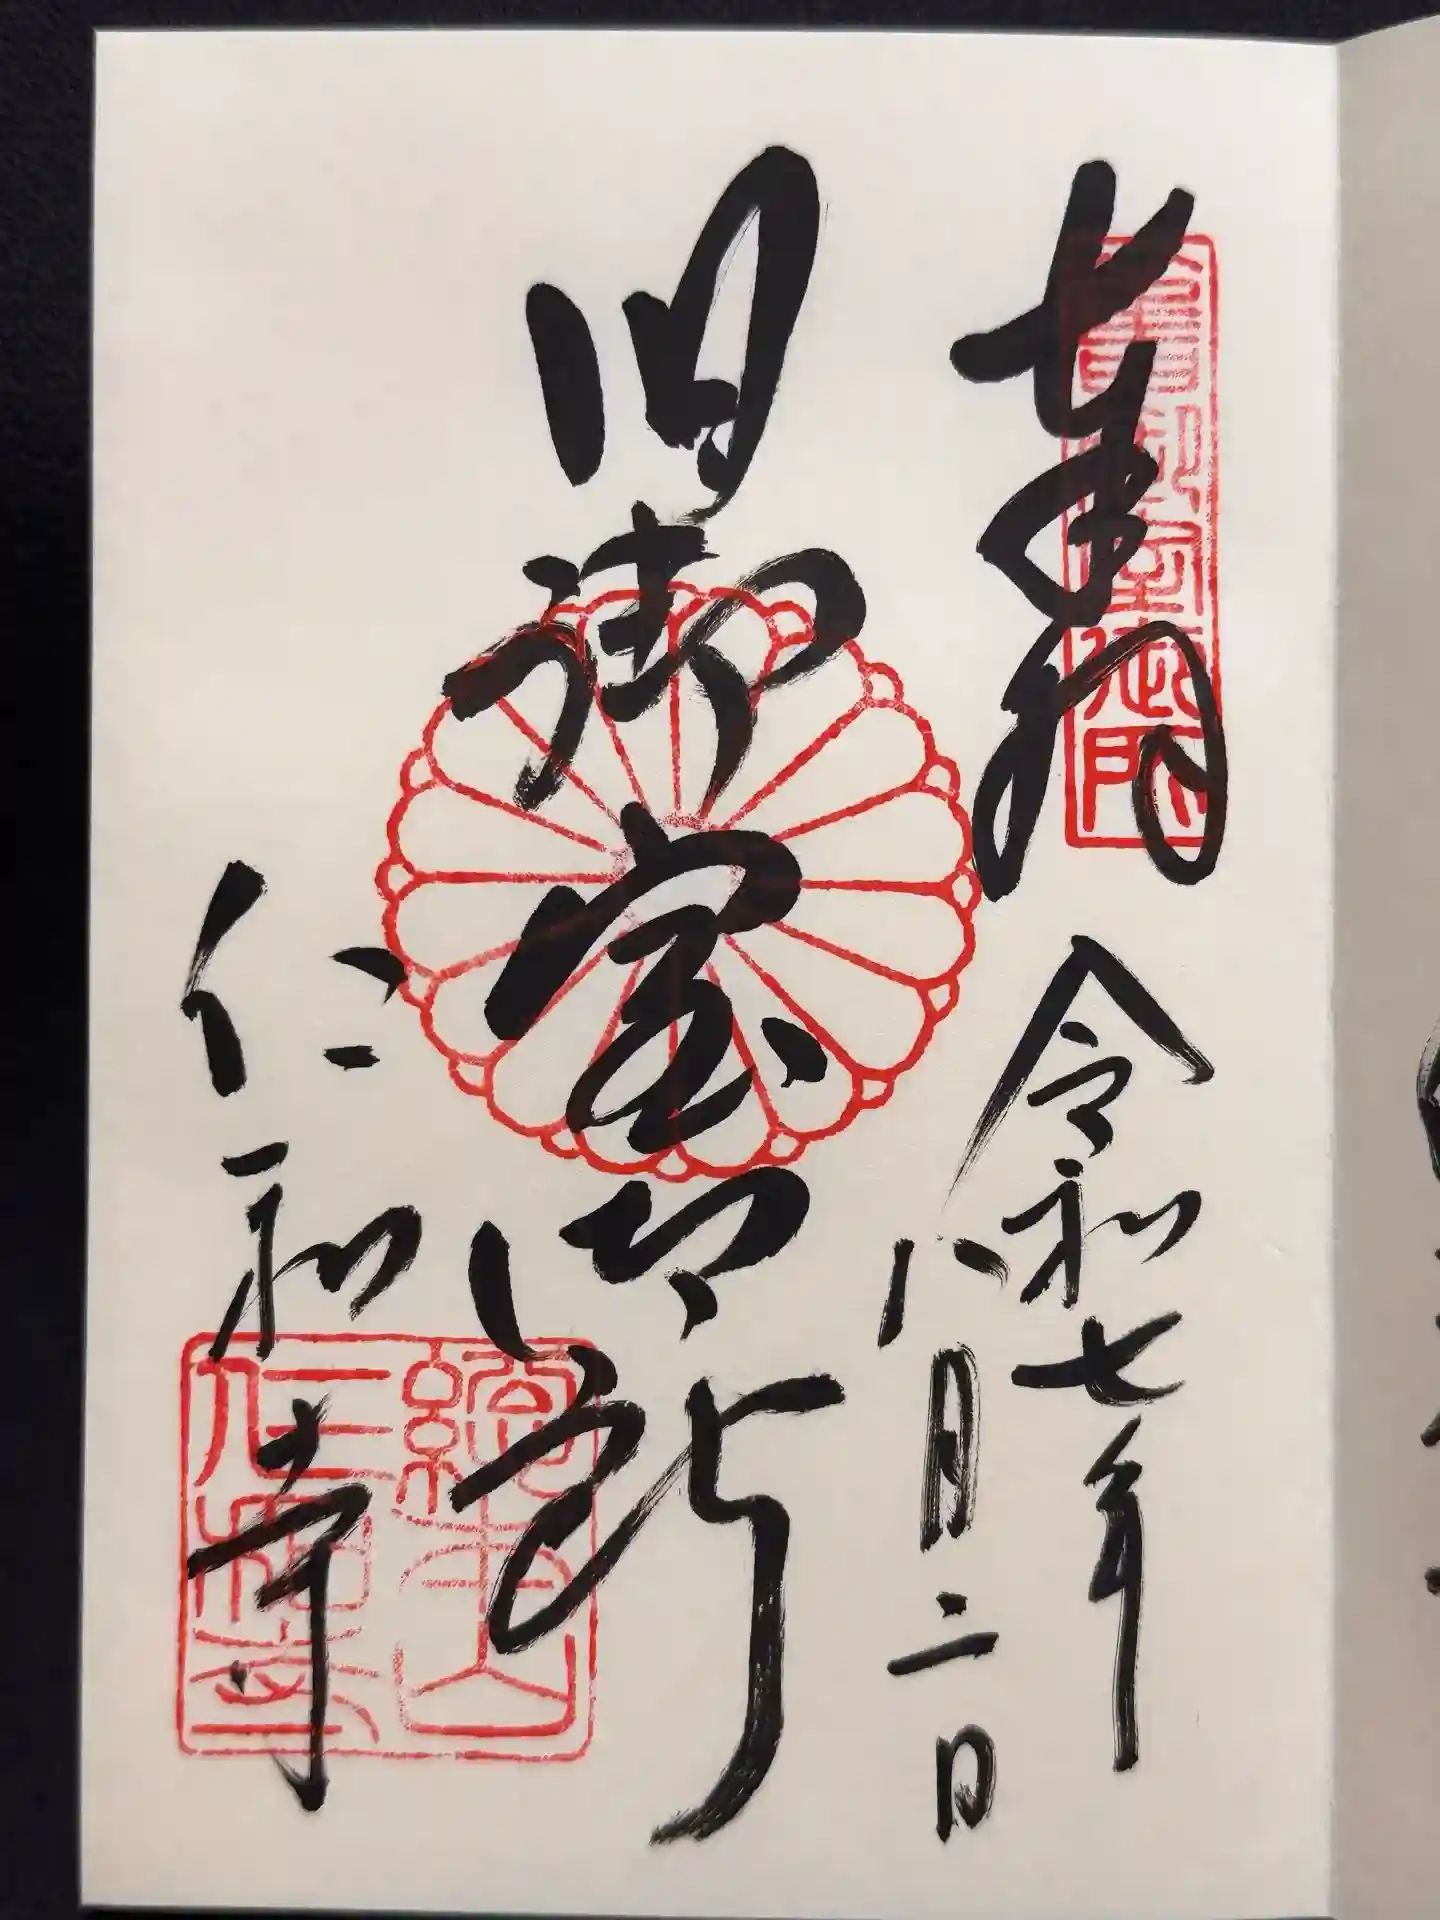 奉拝
舊御室御所
令和七年
八月二日
旧御室御所
仁和寺
總本山
仁和寺